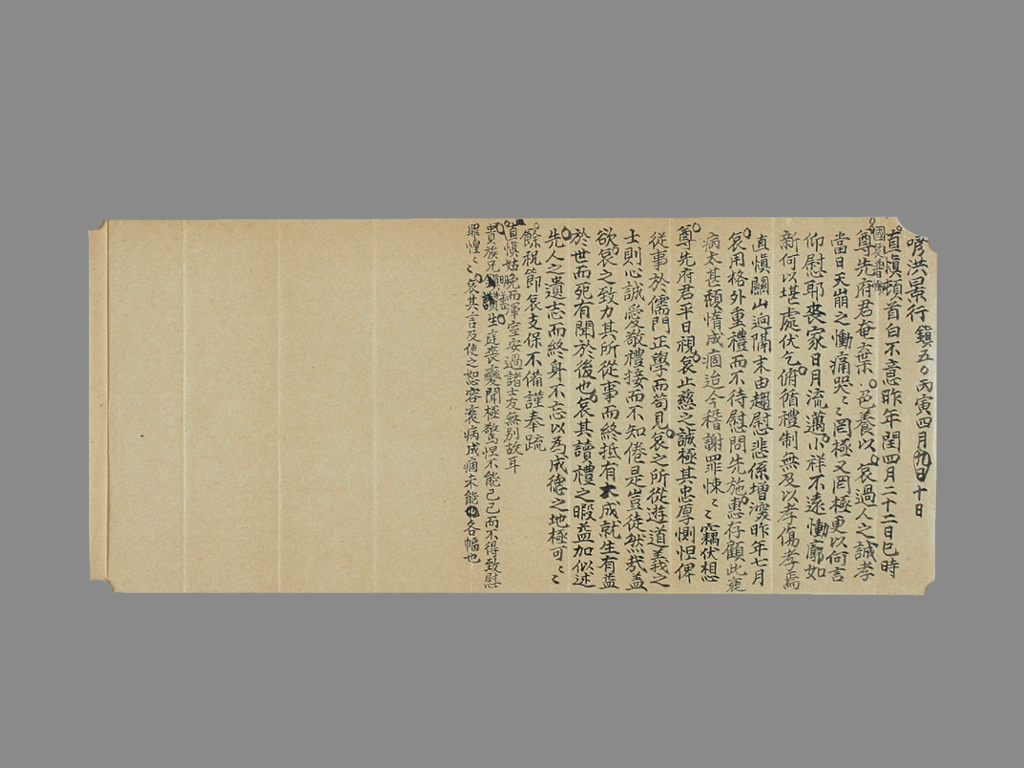 唁洪景行 鎭五〇丙寅四月九日十日
直愼頓首白不意昨年閏四月二十二日巳時
尊先府君奄棄色養以哀過人之誠孝
當日天崩之慟痛哭〻罔極又罔極更以何言
仰慰耶喪家日月流邁小祥不遠慟廓如
新何以堪處伏乞俯循禮制無及以孝傷孝焉
直愼關山逈隔末由趨慰悲係增深昨年七月
哀用格外重禮而不待慰問先施惠存顧此衰
病太甚頹惰成痼迨今稽謝罪悚〻竊伏想
尊先府君平日視哀止慈之誠極其忠厚惻怛俾
從事於儒門正學而苟見哀之所從遊道義之
士則心誠愛敬禮接而不知倦是豈徒然哉盖
欲哀之致力其所從事而終抵有大成就生有益
於世而死有聞於後也哀其讀禮之暇益加似述
先人之遺志而終身不忘以爲成德之地極可〻
餘祝節哀支保不備謹奉疏
直愼姑晩而渾室安過諸士友無別故耳
貴族兄 生庭喪變聞極驚怛不能已已而不得致慰
罪惶〻哀其言及使之恕容衰病成痼未能 各幅也